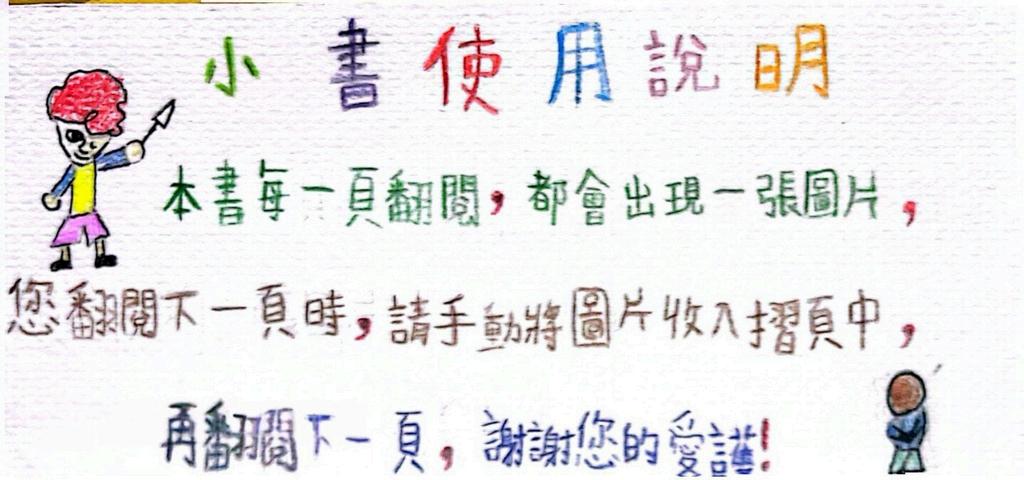 小書使用說明
本書每一頁翻閱,都會出現一張圖片,
您翻閱下一頁時,請手動將圖片收入摺頁中,
再翻閱下一頁,謝謝您的愛護!